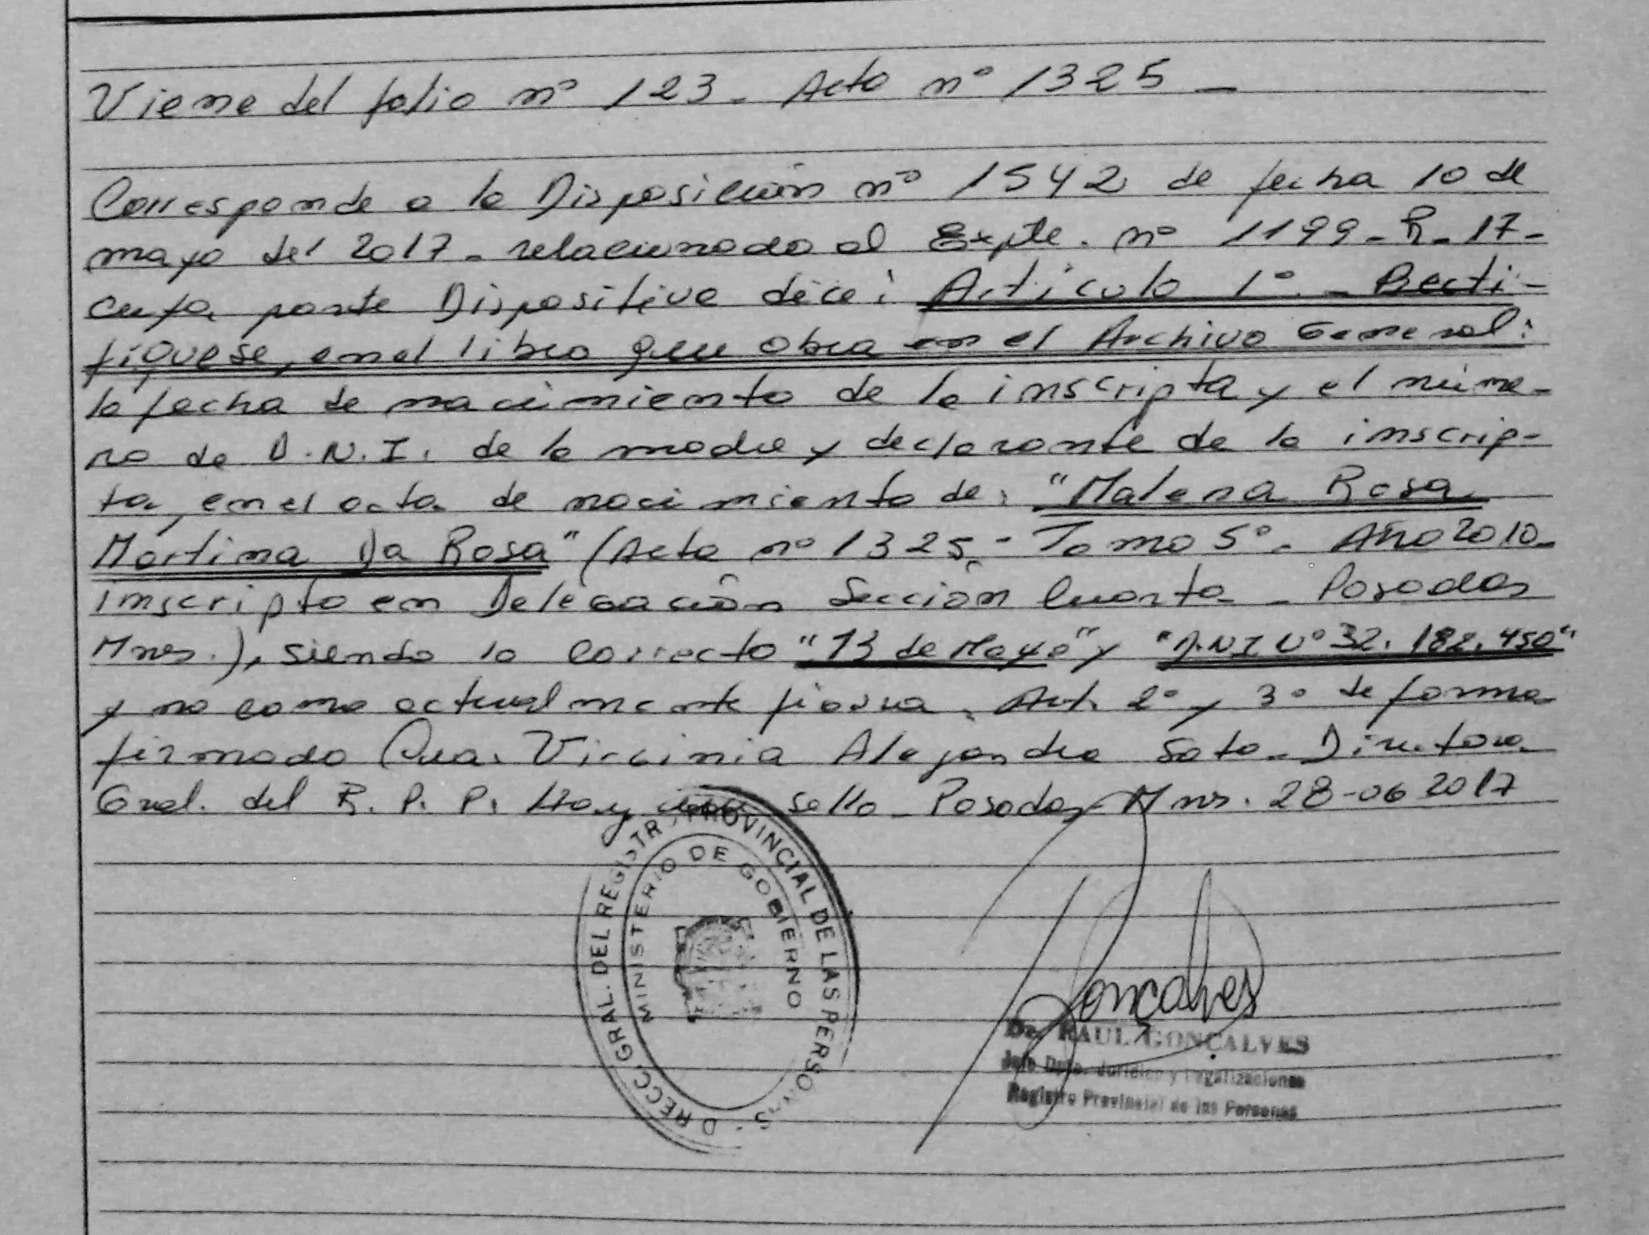 Viene del folio nº 123 - Acta nº 1325 -
Corresponde a la Disposición nº 1542 de fecha 10 de
mayo del 2017 - relacionado al Expte. nº 1199-R-17-
cuya parte Dispositiva dice: Artículo 1º - Recti-
fíquese, en el libro que obra en el Archivo General:
la fecha de nacimiento de la inscripta y el núme-
ro de D.N.I. de la madre y declarante de la inscrip-
ta, en el acta de nacimiento de: "Malena Rosa
Martina Da Rosa" (Acta nº 1325 - Tomo 5º - Año 2010-
inscripto en Delegación Sección Cuarta - Posadas
Mnes.), siendo lo correcto "13 de Mayo" y "D.N.I Nº 32.182.450"
y no como actualmente figura. Art. 2º y 3º de forma
firmado Cra. Virginia Alejandra Soto - Directora
Gral. del R.P.P. Hay sello - Posadas Mnes. 28-06 2017
DIRECC. GRAL. DEL REGISTRO PROVINCIAL DE LAS PERSONAS
MINISTERIO DE GOBIERNO
Gonçalves
Dr. RAUL GONÇALVES
Jefe Dpto. Jurídico y Legalizaciones
Registro Provincial de las Personas